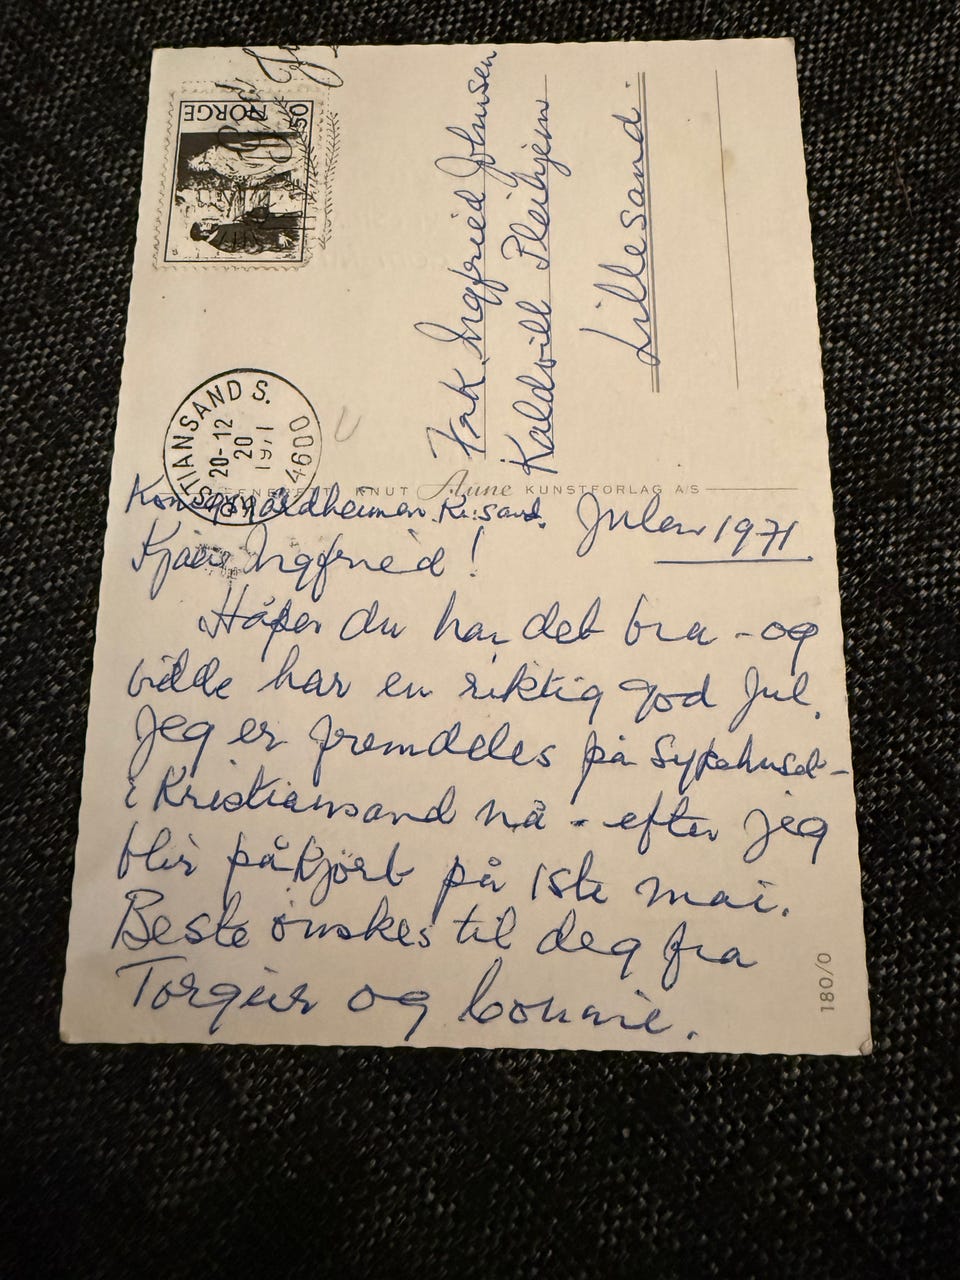 NORGE
50
God Jul
KRISTIANSAND S.
20-12
20
1971
4600
Frk. Ingfried Johnsen
Kaldvell Pleihjem
Lillesand.
ENERETT: KNUT Aune KUNSTFORLAG A/S
Kongsgårdheimen Kr.sand.
Julen 1971
Kjære Ingfried!
Håper du har det bra - og
vidde har en riktig god Jul.
Jeg er fremdeles på Sykehuset -
i Kristiansand nå - efter jeg
blir påkjört på 1ste mai.
Beste önskes til deg fra
Torgeir og Connie.
180/0